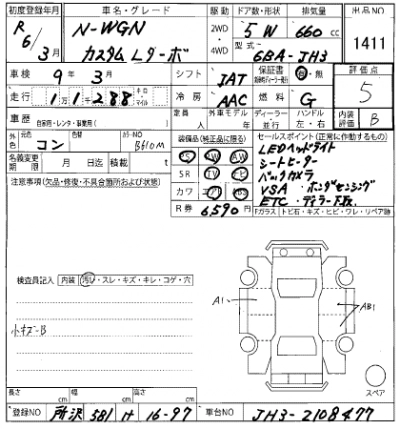 初度登録年月 車名・グレード 駆動 ドア数・形状 排気量 出品NO
R 6/3月 N-WGN カスタム Lターボ 2WD・4WD 5 W 660 cc 1411
型式 6BA-JH3
車検 9年 3月 シフト IAT 保証書 有・無 評価点
走行 11288 キロ・マイル 冷房 AAC 燃料 G 5
車歴 自家用・レンタ・事業用( ) 定員 人 外車モデル 年 ディーラー 並行 ハンドル 左・右 内装評価 B
外色 元色 コン 色替 カラーNO B610M
装備品(純正品に限る) セールスポイント(正常に作動するもの)
名義変更期限 月 日迄 積載 t
PS SW AW LEDヘッドライト
注意事項(欠品・修復・不具合箇所および状態)
SR TV ナビ シートヒーター
カワ エアB ABS バックカメラ
VSA ホンダセンシング
R券 6590円 ETC
Fガラス トビ石・キズ・ヒビ・ワレ・リペア跡
検査員記入 内装 汚れ・スレ・キズ・キレ・コゲ・穴
小キズ-B
A1
AB1
スペア
長さ cm 幅 cm 高さ cm
登録NO 所沢 581 け 16-97 車台NO JH3-2108477